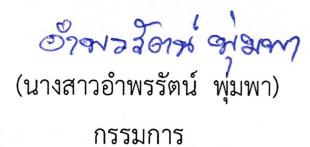 อำพรรัตน์ พุ่มพา
(นางสาวอำพรรัตน์ พุ่มพา)
กรรมการ